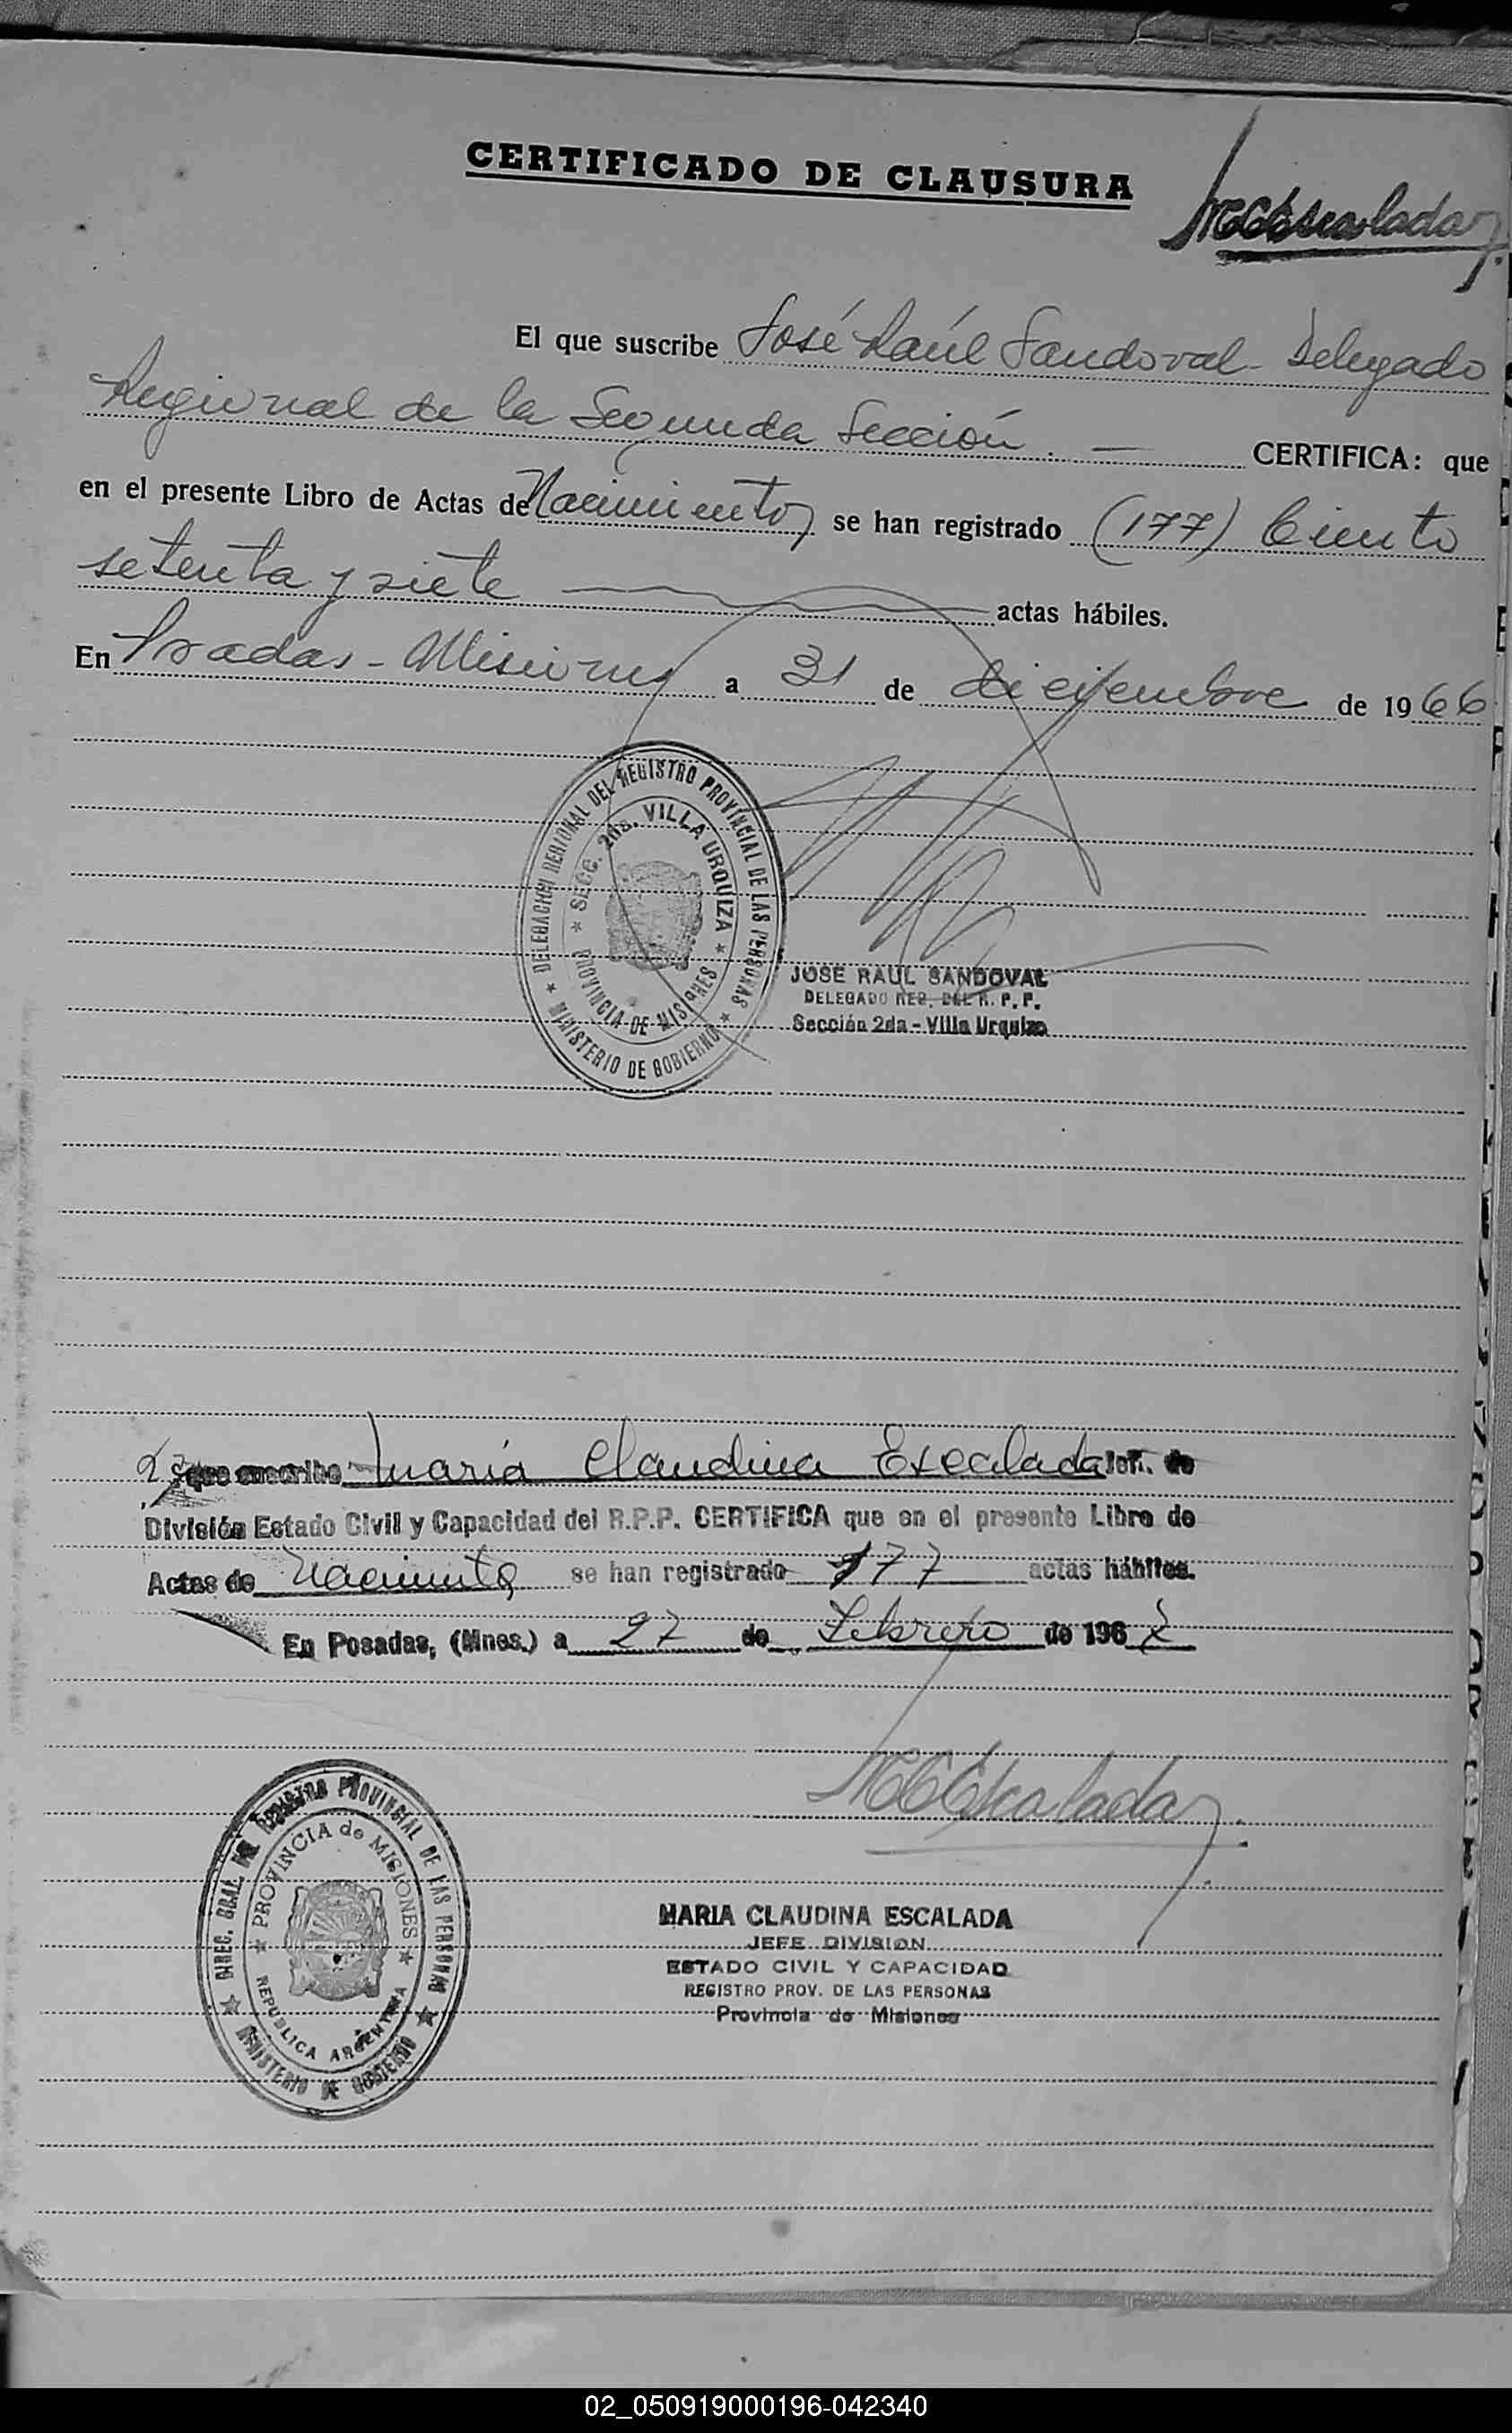 CERTIFICADO DE CLAUSURA
MCEscalada
El que suscribe José Raúl Sandoval - Delegado
Regional de la Segunda Sección. — CERTIFICA: que
en el presente Libro de Actas de Nacimiento se han registrado (177) Ciento
setenta y siete actas hábiles.
En Posadas - Misiones a 31 de diciembre de 1966
DELEGACION REGIONAL DEL REGISTRO PROVINCIAL DE LAS PERSONAS
SECC. 2da. VILLA URQUIZA
PROVINCIA DE MISIONES
MINISTERIO DE GOBIERNO
JOSE RAUL SANDOVAL
DELEGADO REG. DEL R. P. P.
Sección 2da - Villa Urquiza
que suscribe María Claudina Escalada Jefe de
División Estado Civil y Capacidad del R.P.P. CERTIFICA que en el presente Libro de
Actas de Nacimiento se han registrado 177 actas hábiles.
En Posadas, (Mnes.) a 27 de Febrero de 196
MCEscalada
DIREC. GRAL. DEL REGISTRO PROVINCIAL DE LAS PERSONAS
PROVINCIA de MISIONES
REPUBLICA ARGENTINA
MINISTERIO DE GOBIERNO
MARIA CLAUDINA ESCALADA
JEFE DIVISION
ESTADO CIVIL Y CAPACIDAD
REGISTRO PROV. DE LAS PERSONAS
Provincia de Misiones
02_050919000196-042340